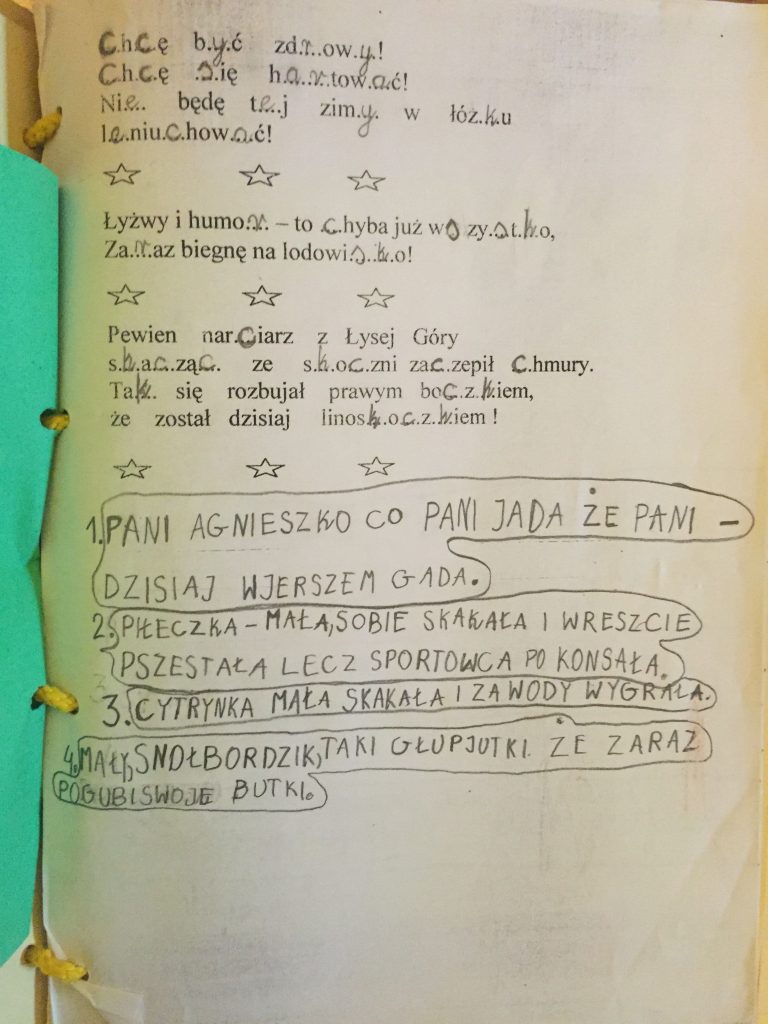 Chcę być zdrowy!
Chcę się hartować!
Nie będę tej zimy w łóżku
leniuchować!
Łyżwy i humor – to chyba już wszystko,
Zaraz biegnę na lodowisko!
Pewien narciarz z Łysej Góry
skacząc ze skoczni zaczepił chmury.
Tak się rozbujał prawym boczkiem,
że został dzisiaj linoskoczkiem!
1. PANI AGNIESZKO CO PANI JADA ŻE PANI –
DZISIAJ WJERSZEM GADA.
2. PIŁECZKA – MAŁA, SOBIE SKAKAŁA I WRESZCIE
PSZESTAŁA LECZ SPORTOWCA PO KONSAŁA.
3. CYTRYNKA MAŁA SKAKAŁA I ZAWODY WYGRAŁA.
4. MAŁY, SNOŁBORDZIK, TAKI GŁUPJUTKI. ŻE ZARAZ
POGUBI SWOJE BUTKI.